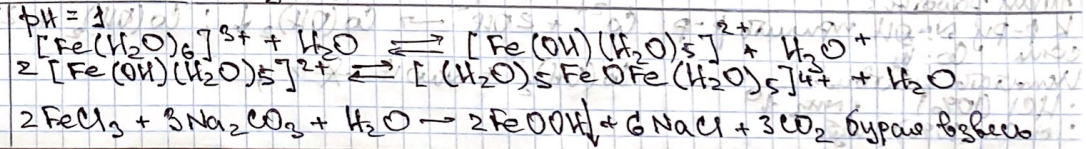 pH = 1
[Fe(H₂O)₆]³⁺ + H₂O ⇄ [Fe(OH)(H₂O)₅]²⁺ + H₃O⁺
2[Fe(OH)(H₂O)₅]²⁺ ⇄ [(H₂O)₅FeOFe(H₂O)₅]⁴⁺ + H₂O
2FeCl₃ + 3Na₂CO₃ + H₂O → 2FeOOH↓ + 6NaCl + 3CO₂ бурая взвесь